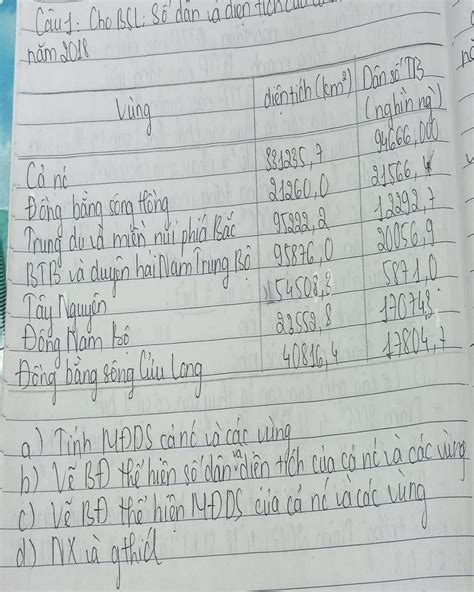 Câu 1. Cho BSL: Số dân và diện tích của
năm 2018
Vùng diện tích (km²) Dân số TB (nghìn ng)
Cả nc 331235,7 94666,000
Đồng bằng sông Hồng 21260,0 21566,4
Trung du và miền núi phía Bắc 95222,2 12292,7
BTB và duyên hải Nam Trung Bộ 95876,0 20056,9
Tây Nguyên 54508,3 5871,0
Đông Nam Bộ 23552,8 17074,3
Đồng bằng sông Cửu Long 40816,4 17804,7
a) Tính MĐDS cả nc và các vùng
b) Vẽ BĐ thể hiện số dân và diện tích của cả nc và các vùng
c) Vẽ BĐ thể hiện MĐDS của cả nc và các vùng
d) NX và gthích